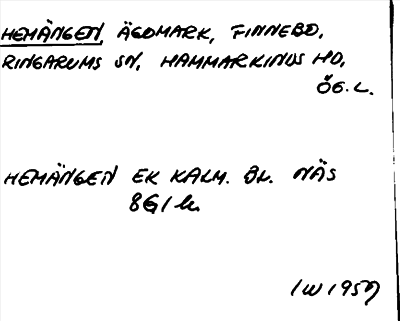 HEMÄNGEN, ÄGOMARK, FINNEBO,
RINGARUMS SN, HAMMARKINDS HD,
ÖG. L.
HEMÄNGEN EK KALM. BL. NÄS
8G1
IW 1957